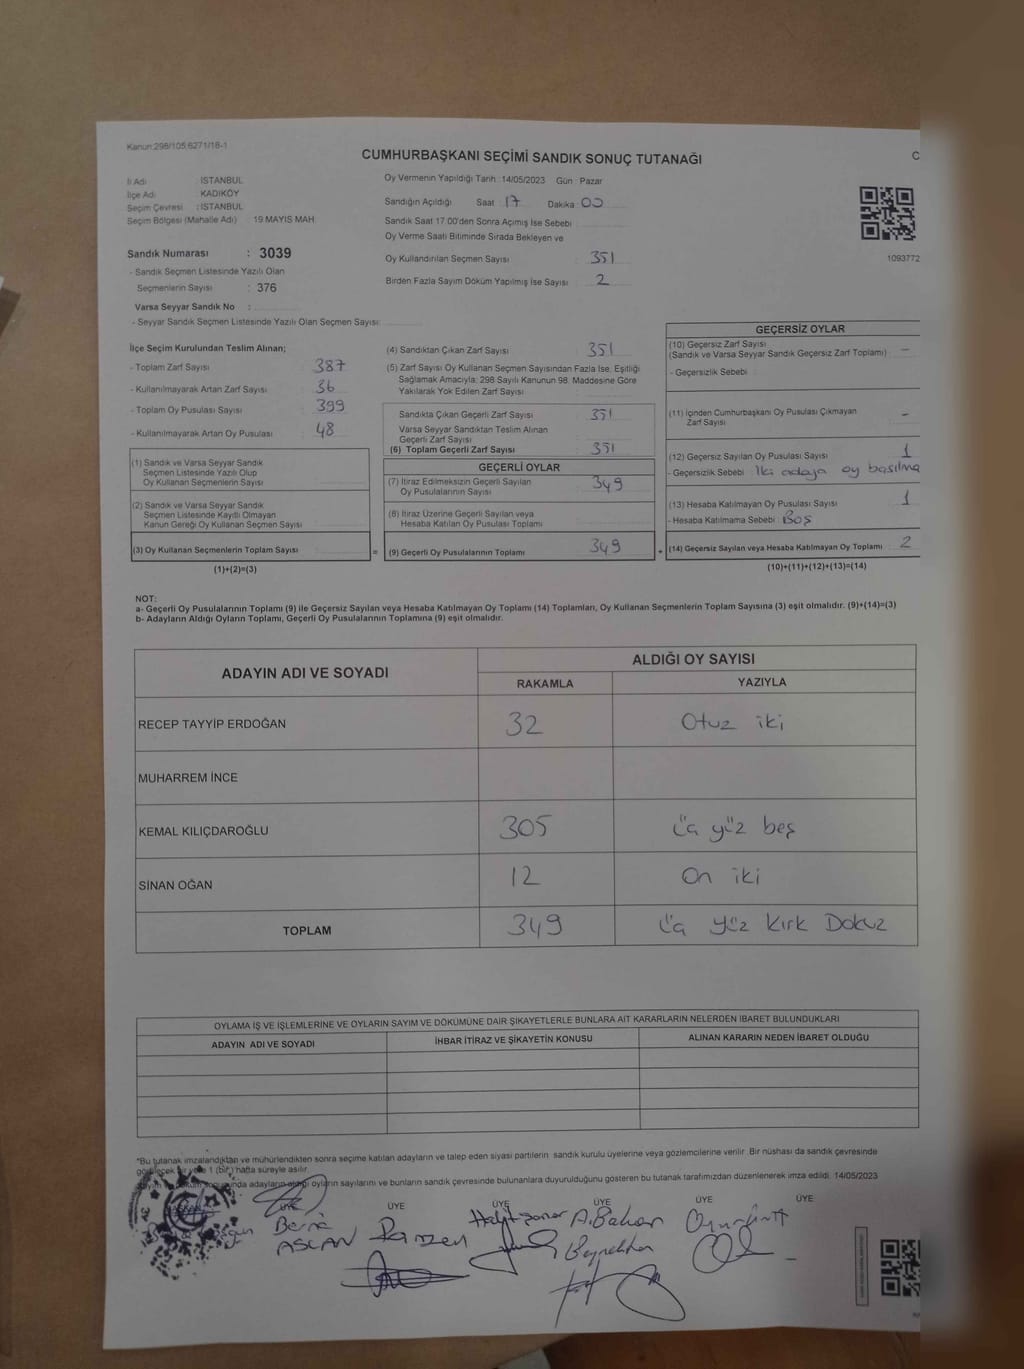 Kanun:298/105,6271/18-1
CUMHURBAŞKANI SEÇİMİ SANDIK SONUÇ TUTANAĞI
C
İl Adı : İSTANBUL
İlçe Adı : KADIKÖY
Seçim Çevresi : İSTANBUL
Seçim Bölgesi (Mahalle Adı) : 19 MAYIS MAH.
Sandık Numarası : 3039
- Sandık Seçmen Listesinde Yazılı Olan
Seçmenlerin Sayısı : 376
Varsa Seyyar Sandık No :
- Seyyar Sandık Seçmen Listesinde Yazılı Olan Seçmen Sayısı:
Oy Vermenin Yapıldığı Tarih :14/05/2023 Gün : Pazar
Sandığın Açıldığı Saat : 17 Dakika : 00
Sandık Saat 17.00'den Sonra Açılmış İse Sebebi :
Oy Verme Saati Bitiminde Sırada Bekleyen ve
Oy Kullandırılan Seçmen Sayısı : 351
Birden Fazla Sayım Döküm Yapılmış İse Sayısı : 2
1093772
İlçe Seçim Kurulundan Teslim Alınan;
- Toplam Zarf Sayısı : 387
- Kullanılmayarak Artan Zarf Sayısı : 36
- Toplam Oy Pusulası Sayısı : 399
- Kullanılmayarak Artan Oy Pusulası : 48
(1) Sandık ve Varsa Seyyar Sandık
Seçmen Listesinde Yazılı Olup
Oy Kullanan Seçmenlerin Sayısı :
(2) Sandık ve Varsa Seyyar Sandık
Seçmen Listesinde Kayıtlı Olmayan
Kanun Gereği Oy Kullanan Seçmen Sayısı :
(3) Oy Kullanan Seçmenlerin Toplam Sayısı :
(1)+(2)=(3)
=
(4) Sandıktan Çıkan Zarf Sayısı : 351
(5) Zarf Sayısı Oy Kullanan Seçmen Sayısından Fazla İse, Eşitliği
Sağlamak Amacıyla; 298 Sayılı Kanunun 98. Maddesine Göre
Yakılarak Yok Edilen Zarf Sayısı :
Sandıkta Çıkan Geçerli Zarf Sayısı : 351
Varsa Seyyar Sandıktan Teslim Alınan
Geçerli Zarf Sayısı :
(6) Toplam Geçerli Zarf Sayısı : 351
GEÇERLİ OYLAR
(7) İtiraz Edilmeksizin Geçerli Sayılan
Oy Pusulalarının Sayısı : 349
(8) İtiraz Üzerine Geçerli Sayılan veya
Hesaba Katılan Oy Pusulası Toplamı :
(9) Geçerli Oy Pusulalarının Toplamı : 349
+
GEÇERSİZ OYLAR
(10) Geçersiz Zarf Sayısı
(Sandık ve Varsa Seyyar Sandık Geçersiz Zarf Toplamı) : -
- Geçersizlik Sebebi :
(11) İçinden Cumhurbaşkanı Oy Pusulası Çıkmayan
Zarf Sayısı : -
(12) Geçersiz Sayılan Oy Pusulası Sayısı : 1
- Geçersizlik Sebebi : İki adaya oy basılma
(13) Hesaba Katılmayan Oy Pusulası Sayısı : 1
- Hesaba Katılmama Sebebi : Boş
(14) Geçersiz Sayılan veya Hesaba Katılmayan Oy Toplamı : 2
(10)+(11)+(12)+(13)=(14)
NOT:
a- Geçerli Oy Pusulalarının Toplamı (9) ile Geçersiz Sayılan veya Hesaba Katılmayan Oy Toplamı (14) Toplamları, Oy Kullanan Seçmenlerin Toplam Sayısına (3) eşit olmalıdır. (9)+(14)=(3)
b- Adayların Aldığı Oyların Toplamı, Geçerli Oy Pusulalarının Toplamına (9) eşit olmalıdır.
ADAYIN ADI VE SOYADI
ALDIĞI OY SAYISI
RAKAMLA YAZIYLA
RECEP TAYYİP ERDOĞAN 32 Otuz iki
MUHARREM İNCE
KEMAL KILIÇDAROĞLU 305 Üç yüz beş
SİNAN OĞAN 12 On iki
TOPLAM 349 Üç yüz kırk Dokuz
OYLAMA İŞ VE İŞLEMLERİNE VE OYLARIN SAYIM VE DÖKÜMÜNE DAİR ŞİKAYETLERLE BUNLARA AİT KARARLARIN NELERDEN İBARET BULUNDUKLARI
ADAYIN ADI VE SOYADI İHBAR İTİRAZ VE ŞİKAYETİN KONUSU ALINAN KARARIN NEDEN İBARET OLDUĞU
*Bu tutanak imzalandıktan ve mühürlendikten sonra seçime katılan adayların ve talep eden siyasi partilerin sandık kurulu üyelerine veya gözlemcilerine verilir. Bir nüshası da sandık çevresinde
görülecek bir yere 1 (bir) hafta süreyle asılır.
adayların aldığı oyların sayılarını ve bunların sandık çevresinde bulunanlara duyurulduğunu gösteren bu tutanak tarafımızdan düzenlenerek imza edildi. 14/05/2023
ÜYE ÜYE ÜYE ÜYE ÜYE
ASLAN